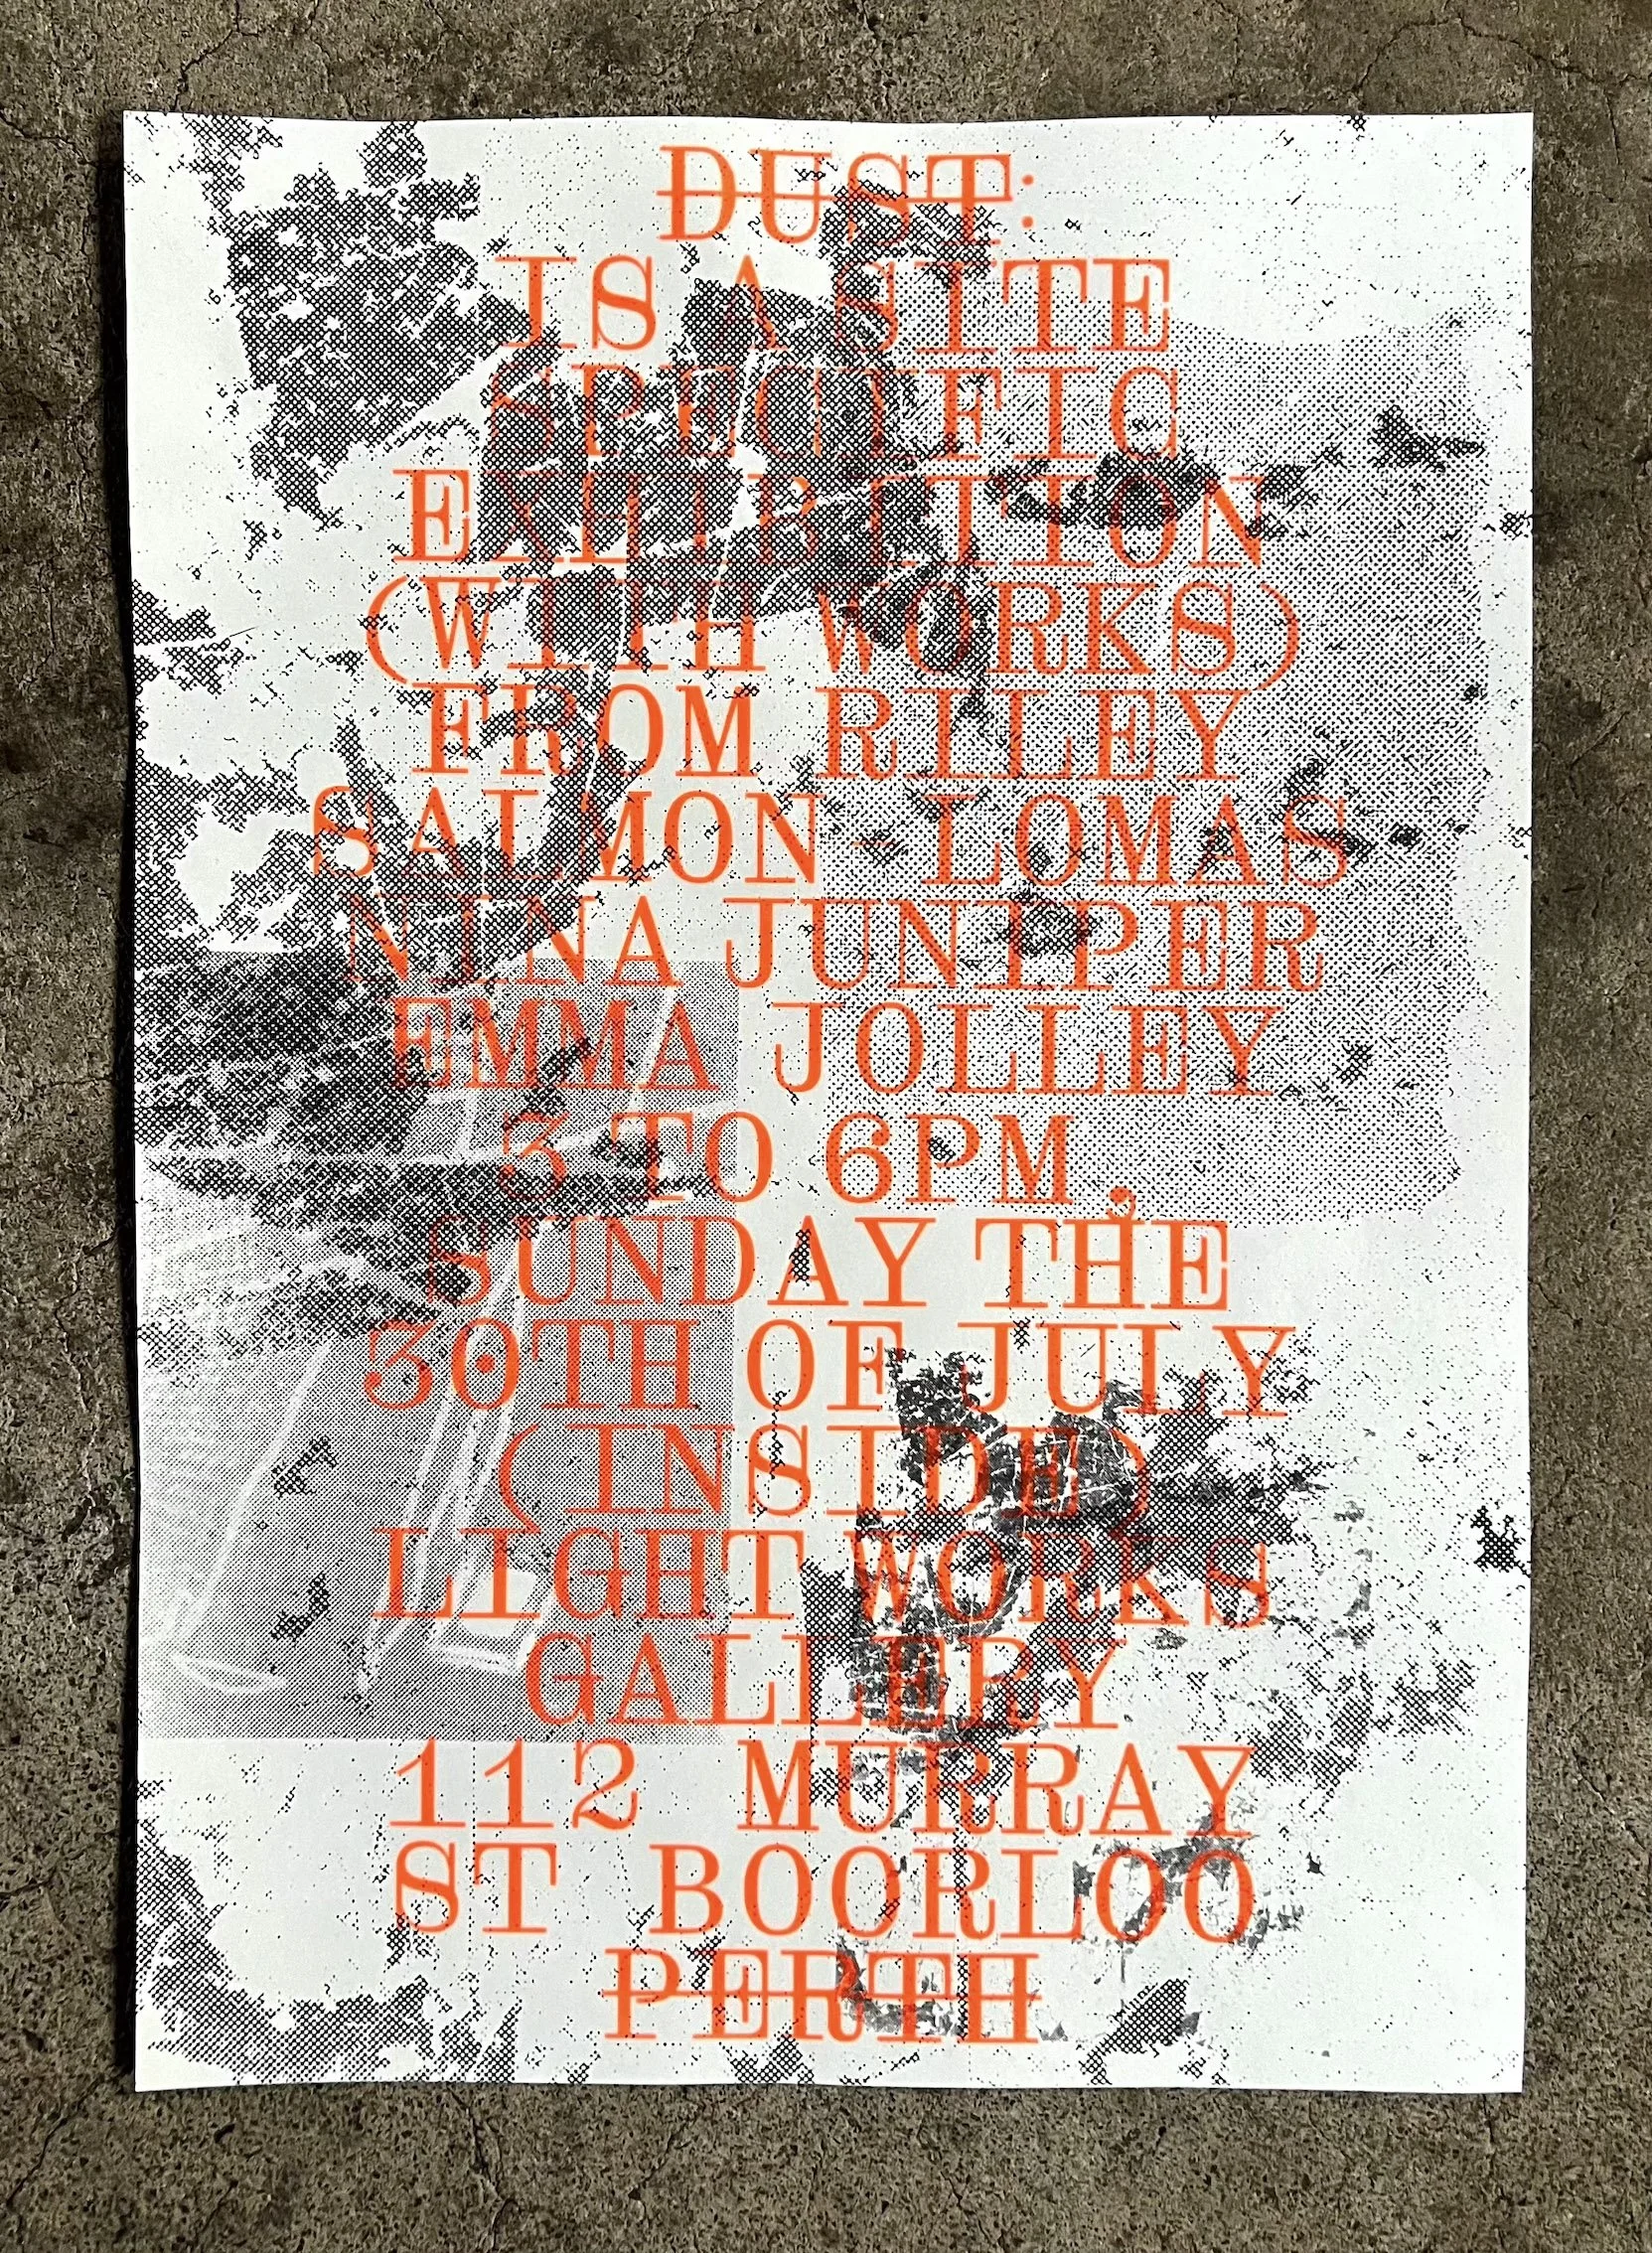 DUST:
IS A SITE
SPECIFIC
EXHIBITION
(WITH WORKS)
FROM RILEY
SALMON-LOMAS
NINA JUNIPER
EMMA JOLLEY
3 TO 6PM,
SUNDAY THE
30TH OF JULY
(INSIDE)
LIGHT WORKS
GALLERY
112 MURRAY
ST BOORLOO
PERTH